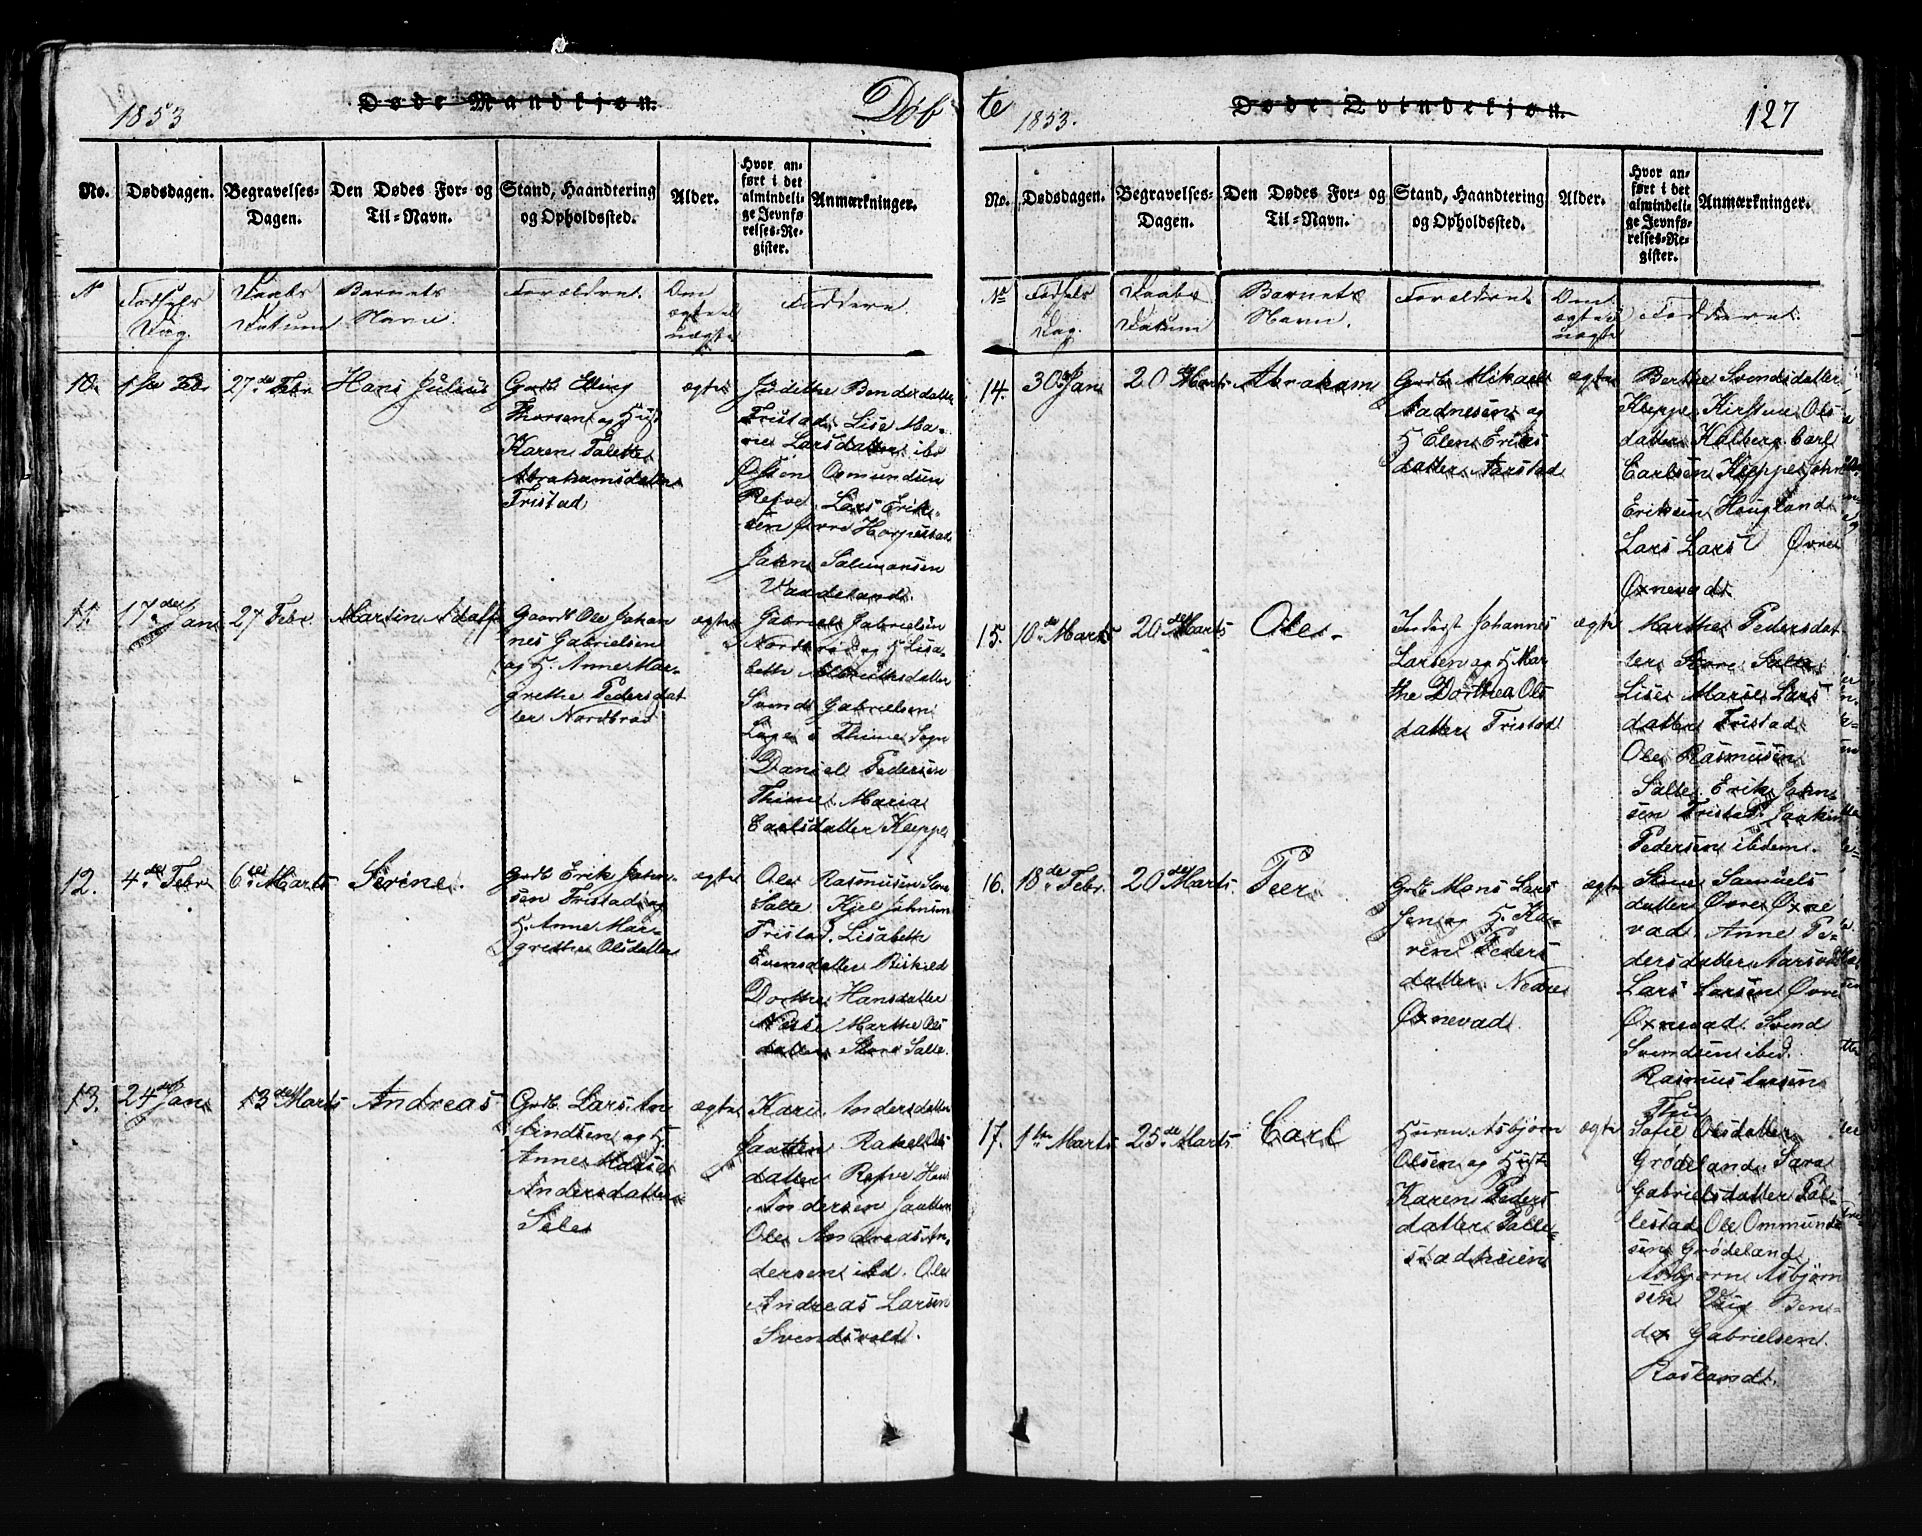 1853 Døde Mandkjøn. Døb
No. Dødsdagen. Begravelses-Dagen. Den Dødes For- og Til-Navn. Stand, Haandtering og Opholdssted. Alder. Hvor anført i det almindelige Jevnførelses-Register. Anmærkninger.
N Fødsels Dag. Daabs Datum Barnets Navn. Forældre. Om ægte el uægte Faddere.
10. 1ste Febr 27de Febr Hans Julius
Grdb. Elling
Thorsen og Hust
Karen Talette
Abrahamsdatter
Tristad
ægte
Jødethe Bendesdatter
Tristad, Lise Ma-
rie Larsdatter ib
Østen Osmundsen
Refve, Lars Erik-
sen Øvre Horpestad
John Salumonsen
Vaadeland.
11. 17de Jan 27 Febr Martin Adolf
Gaardb Ole Johan
nes Gabrielsen
og H. Anne Mar-
grethe Pedersdat
ter Nordbrød
ægte
Gabriel Gabrielsen
Nordbrød og H Lisa-
beth
Svend Gabrielsen
Lige i Thime Sogn
Daniel Pedersen
Thime. Maria
Carlsdatter Kleppe
12. 4de Febr 6te Marts Serine.
Grdb Erik John-
sen Tristad og
H. Anne Mar-
grethe Olsdatter
ægte
Ole Rasmusen Store
Salte Kjel Johnsen
Tristad. Lisabeth
Evensdatter Riskild
Dorthe Hansdatter
Nøse Marthe Ols
datter Store Salte.
13. 24de Jan 13de Marts Andreas
Grdb. Lars An
findsen og H.
Anne Marie
Andersdatter
Sele
ægte
Kari Andersdatter
Jaatten Rakel Ols
datter Refve Hans
Andersen Jaatten
Ole Andreas An-
dersen ibd. Ole
Andreas Larsen
Svendsvold.
te 1853. Døde Qvindekjøn. 127
No. Dødsdagen. Begravelses-Dagen. Den Dødes For- og Til-Navn. Stand, Haandtering og Opholdssted. Alder. Hvor anført i det almindelige Jevnførelses-Register. Anmærkninger.
No Fødsels Dag. Daabs Datum Barnets Navn. Forældre. Om ægte el uægte Faddere.
14. 30 Jan 20 Marts Abraham
Grdb Mikael
Aadnesen og
H Elen Eriks
datter Aarstad
ægte
Berthe Svendsdatter
Kleppe, Kirstine Ols
datter Kalberg. Carl
Carlsen Kleppe John
Eriksen Hougland
Lars Lars Øvre
Øxnevad
15. 10de Marts 20de Marts Ole.
Inderst Johannes
Larsen og H Mar
the Dorthea Ols
datter Tristad
ægte
Marthe Pedersdat
ter Store Salte
Lise Marie Lars
datter Tristad
Ole Rasmusen
Salte. Erik John-
sen Tristad. Joakim
Pedersen ibdem.
16. 18de Febr. 20de Marts Peer
Grdb Mons Lars
sen og H. Ka-
ren Peders
datter Nedre
Øxnevad
ægte
Stine Samuels
datter Øvre Øxne
vad. Anne Pe-
dersdatter Aarsvold
Lars Larsen Øvre
Øxnevad. Svend
Svendsen ibid.
Rasmus Larsen
Thu
17. 1ste Marts 25de Marts Carl
Huusm. Asbjørn
Olsen og Hust
Karen Peders
datter Palle-
stadheien
ægte
Sofie Olsdatter
Grødeland. Sara
Gabrielsdatter Pal-
lestad Ole Ommund
sen Grødeland
Asbjørn Asbjørn
sen Vig Ben-
det Gabrielsen
Rosland.